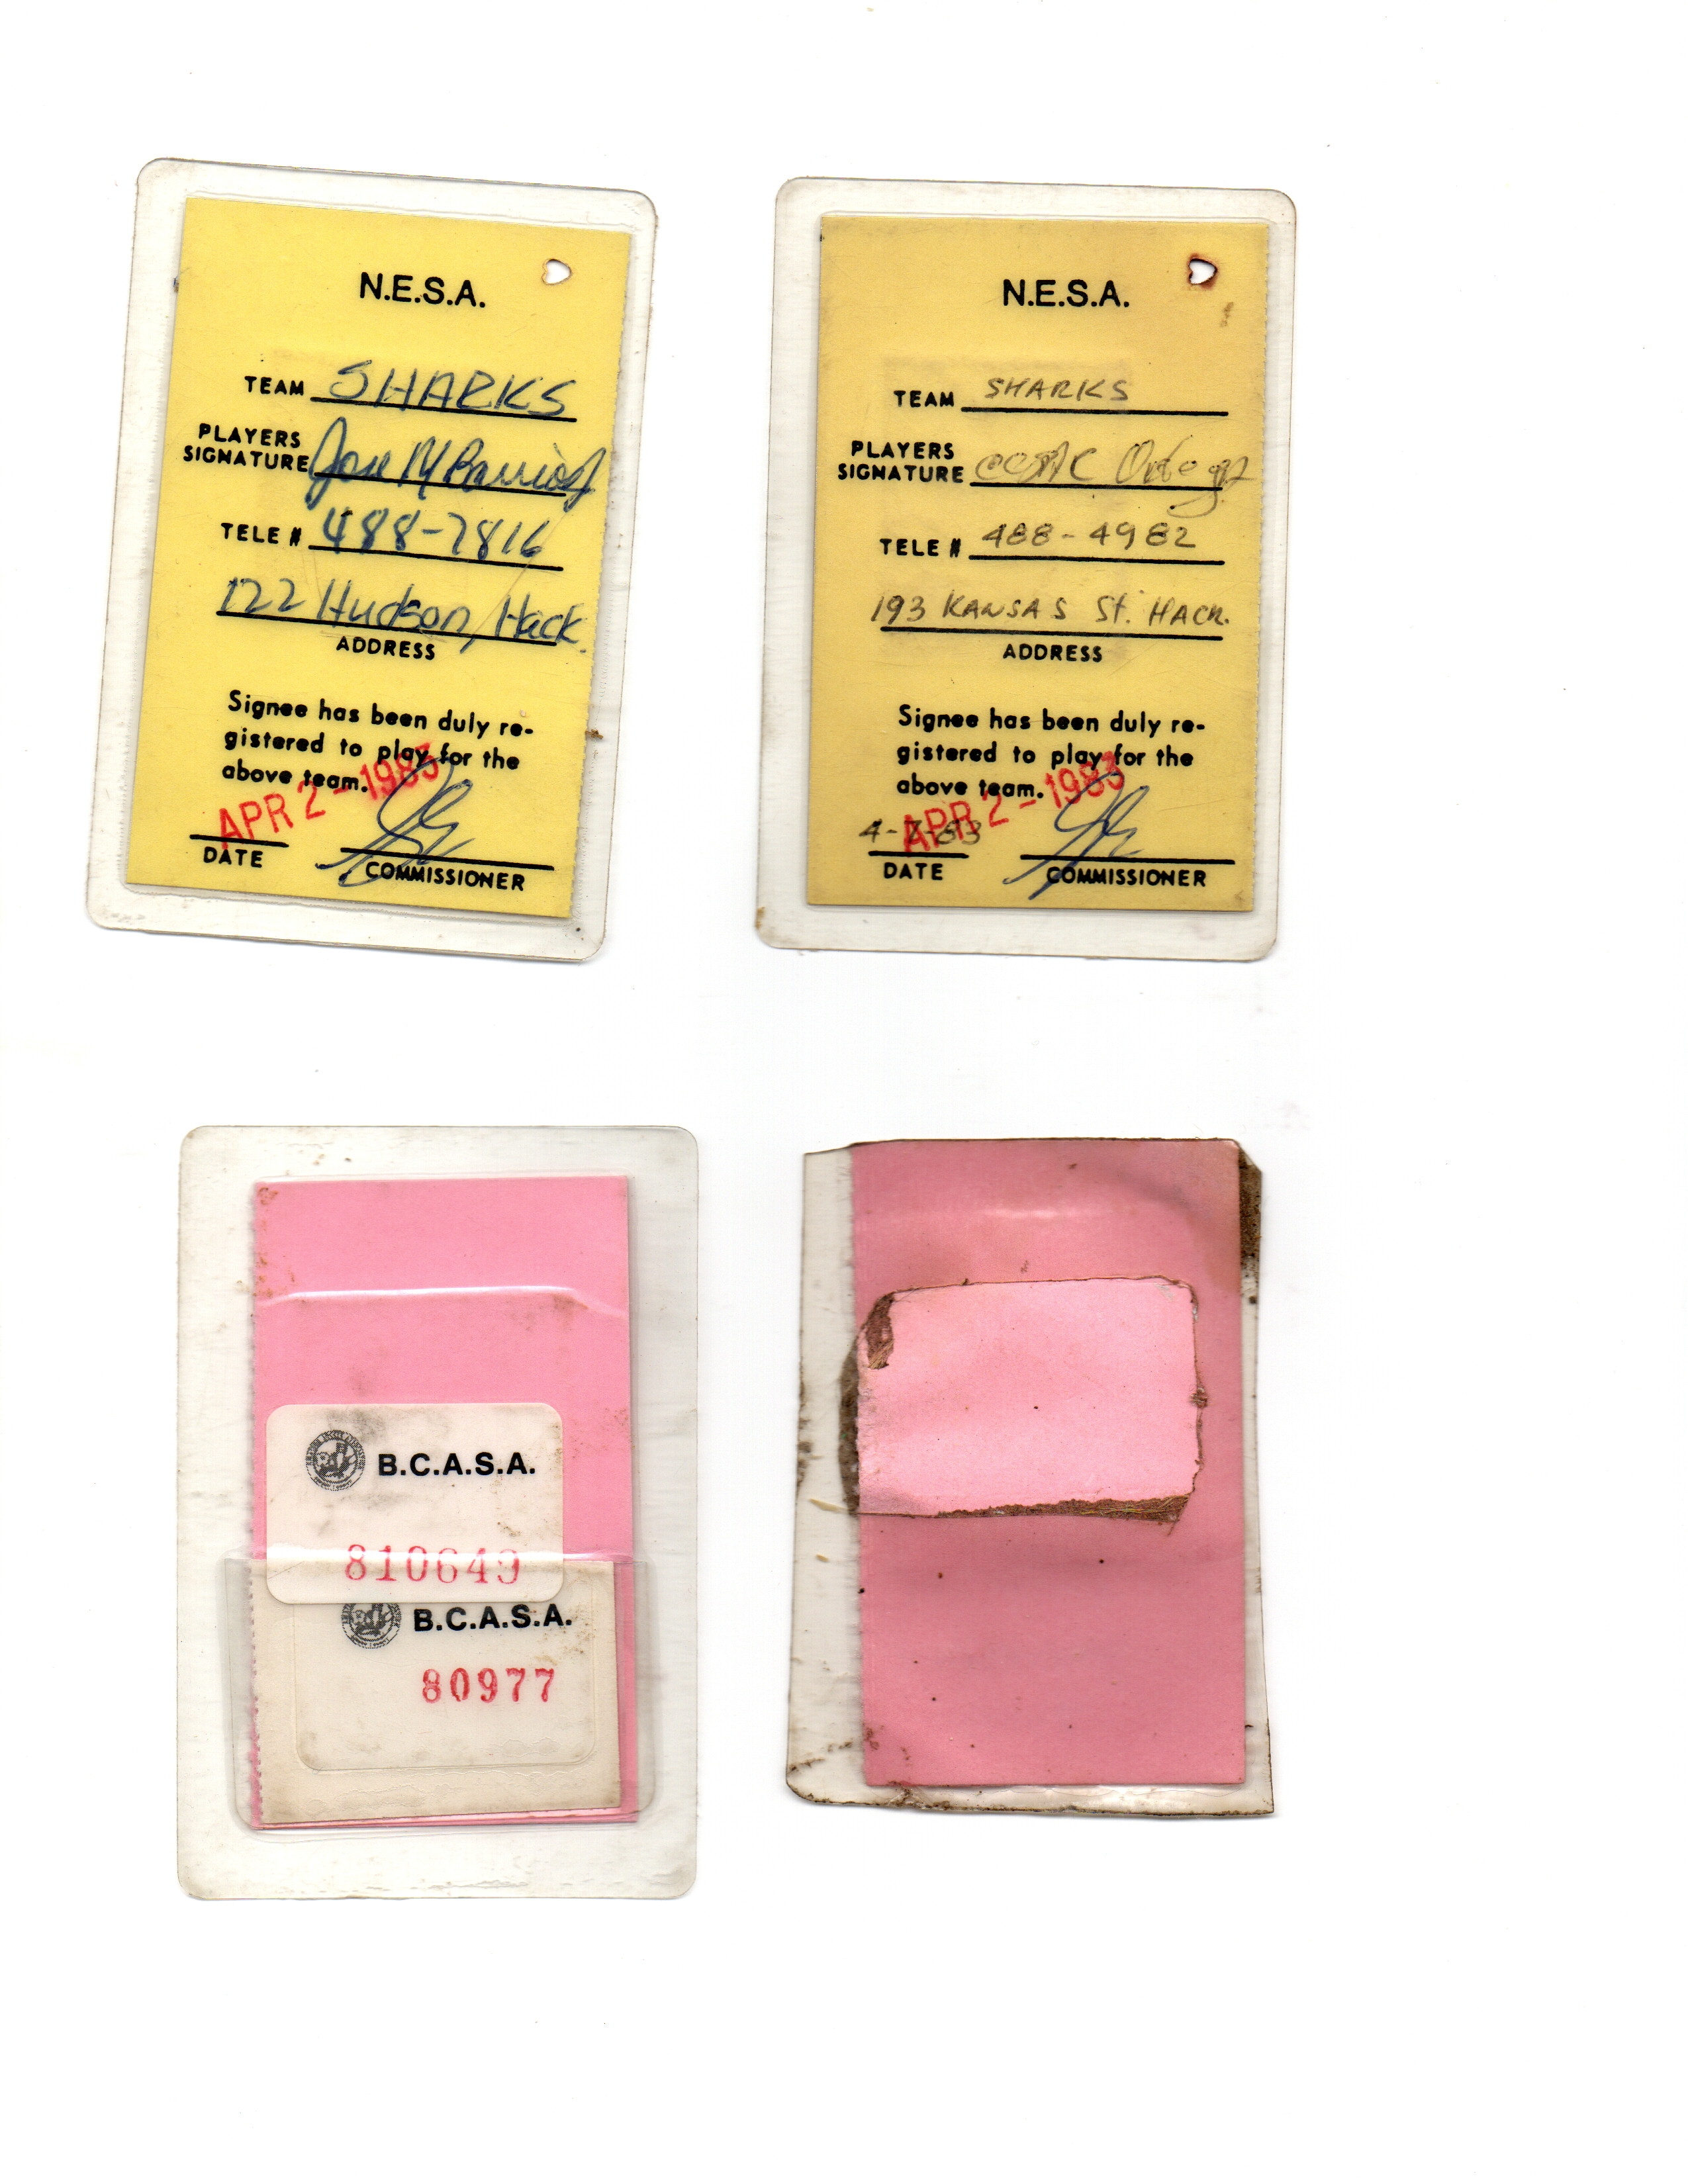 N.E.S.A.
TEAM SHARKS
PLAYERS
SIGNATURE Jose M Barrios
TELE # 488-7816
122 Hudson, Hack.
ADDRESS
Signee has been duly re-
gistered to play for the
above team.
APR 2 - 1983
DATE COMMISSIONER
N.E.S.A.
TEAM SHARKS
PLAYERS
SIGNATURE Ortega
TELE # 488-4982
193 KANSAS St. HACK.
ADDRESS
Signee has been duly re-
gistered to play for the
above team.
APR 2 - 1983
DATE COMMISSIONER
B.C.A.S.A.
810649
B.C.A.S.A.
80977